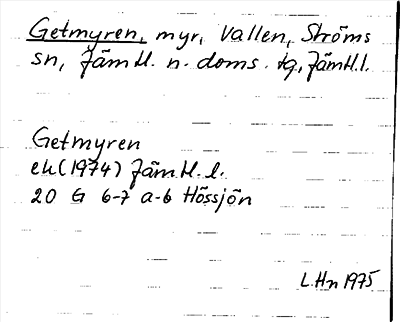 Getmyren, myr, Vallen, Ströms
sn, Jämtl. n. doms. tg, Jämtl.l.
Getmyren
ek (1974) Jämtl. l.
20 G 6-7 a-b Hössjön
L.Hn 1975